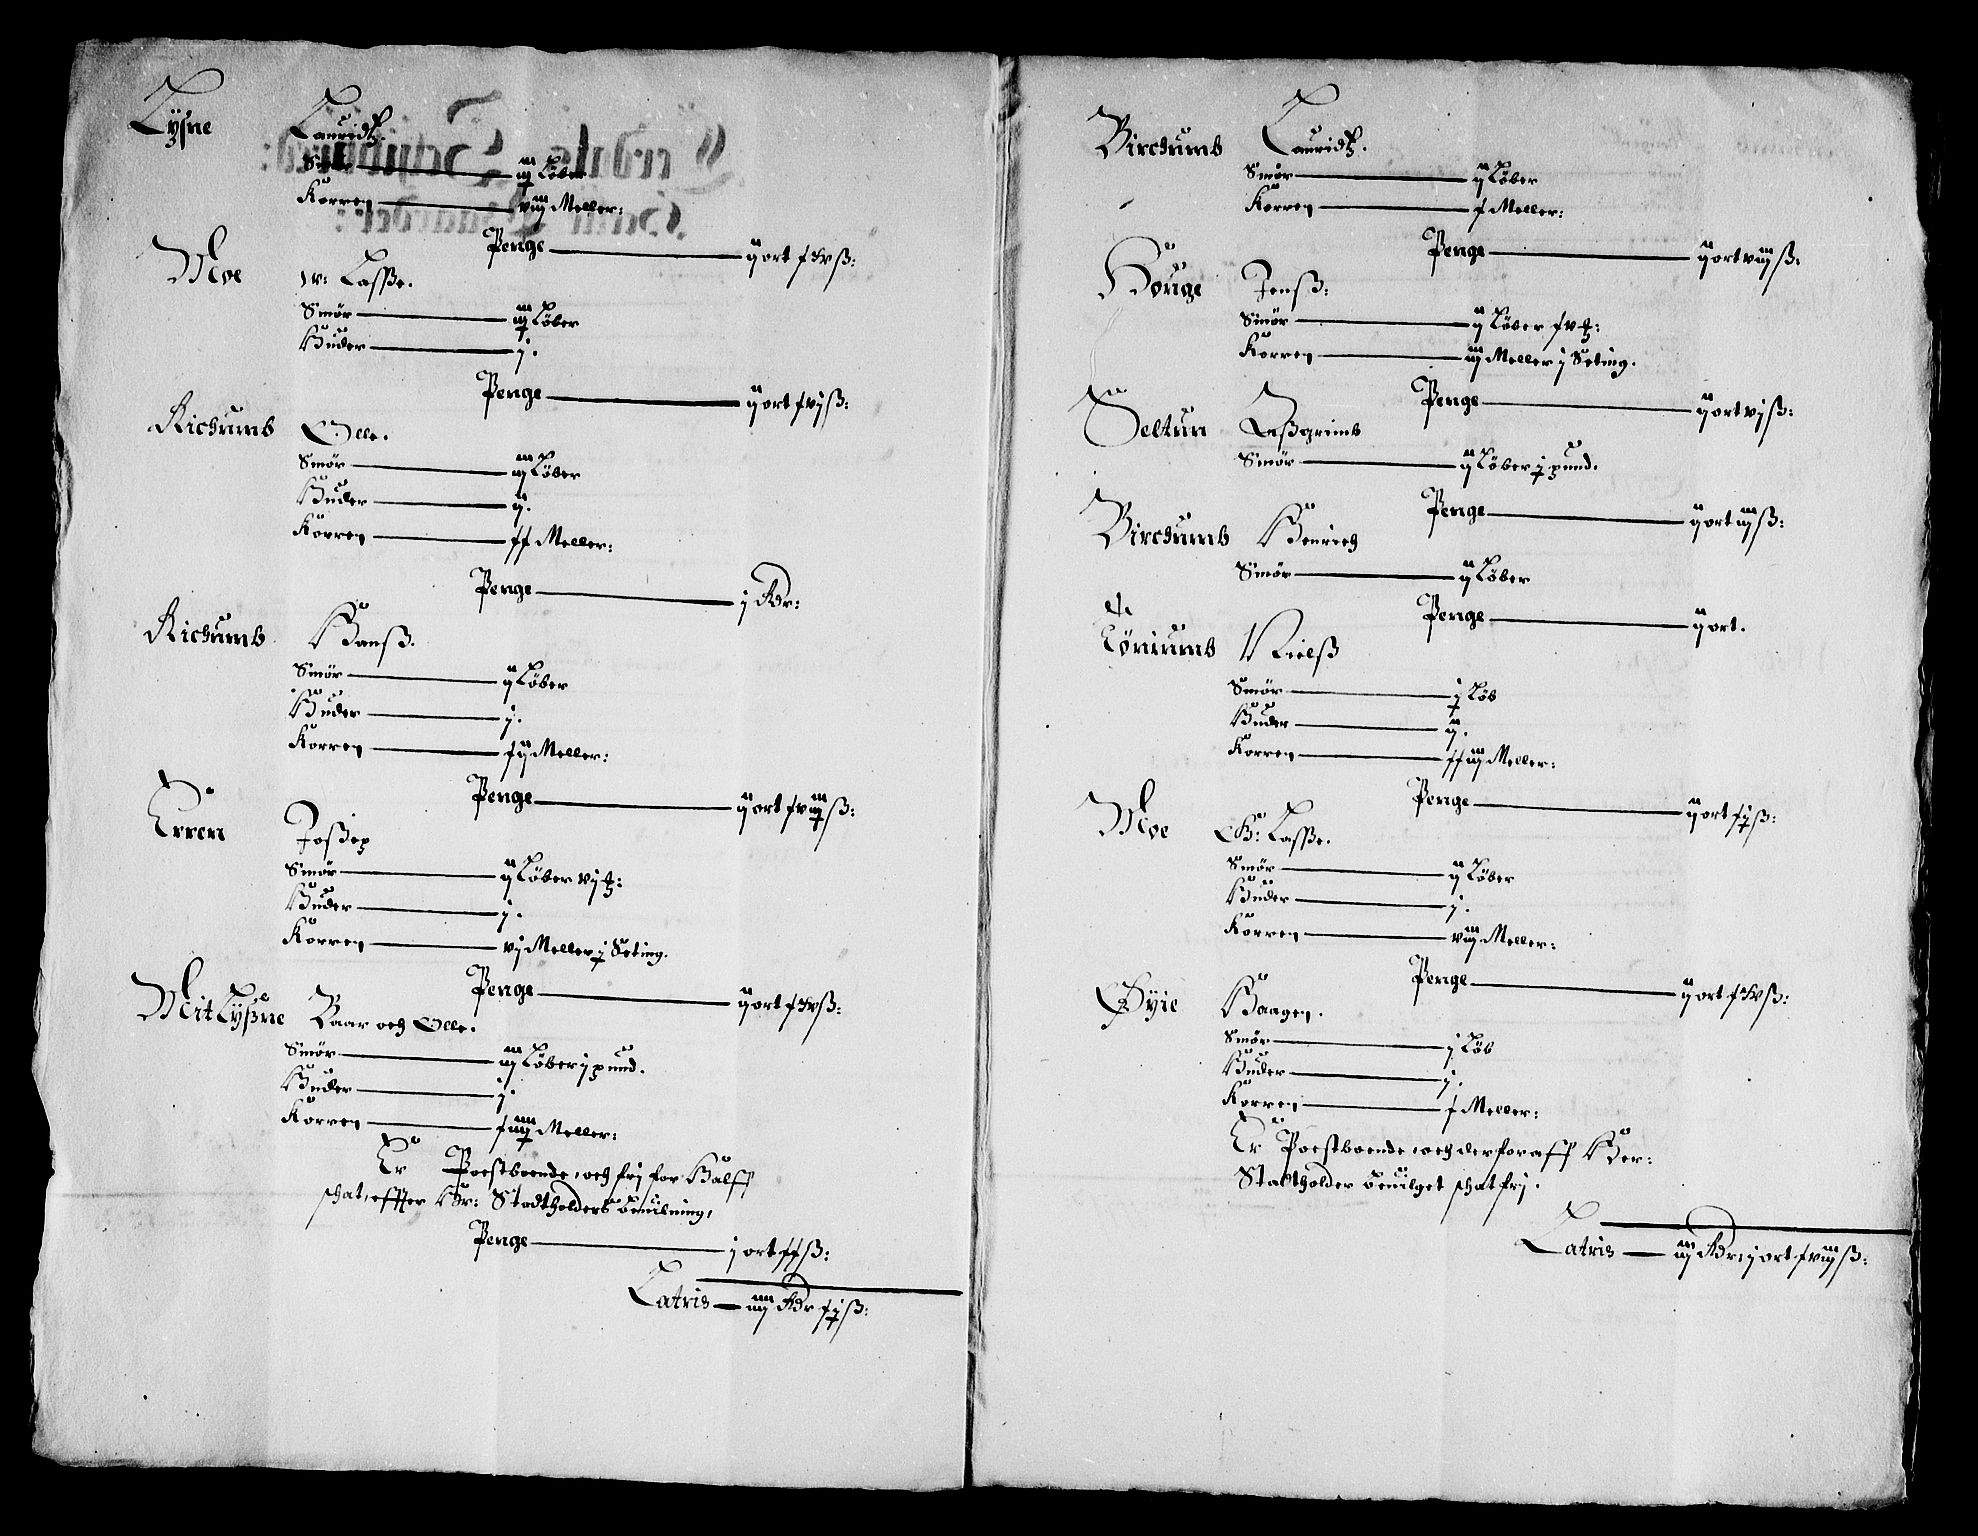 Lysne Lauridtz.
Smör iij Löber
Korren viij Meller:
Penge ij ort xv ß:
Moe w: Lasße.
Smör iij Löber
Huder j.
Penge ij ort xvj ß:
Richumb Olle.
Smör iij Löber
Huder ij.
Korren xx Meller:
Penge j Rdr:
Richumb Hanß.
Smör ij Löber
Huder j.
Korren xij Meller:
Penge ij ort xviij ß:
Erren Joßep
Smör ij Löber vj
Huder j.
Korren vj Meller j Seting.
Penge ij ort xv ß:
Mit Lyßne Baar och Olle.
Smör iij Löber j pund.
Huder j
Korren xiiij Meller:
Er Poestboende, och fri for Halff
schat, effter Hr: Stadtholders beuilning,
Penge j ort xx ß:
Latris iiij Rdr xj ß:
Birchumb Lauridtz.
Smör ij Löber
Korren x Meller:
Penge ij ort viij ß:
Houge Jenß:
Smör ij Löber xv
Korren iij Meller j Seting.
Penge ij ort vj ß:
Seltun Aßgrimb
Smör ij Löber j pund.
Penge ij ort iij ß:
Birchumb Henrich
Smör ij Löber
Penge ij ort.
Töniumb Nielß
Smör j Löb
Huder ij.
Korren xxiij Meller:
Penge ij ort xj ß:
Moe Lasße.
Smör ij Löber
Huder j.
Korren viij Meller:
Penge ij ort xv ß:
Øyie Haagen.
Smör j Löb
Huder j.
Korren x Meller:
Er Poestboende, och derfor aff Her:
Stadtholder beuilget schatfri.
Latris iij Rdr: j ort xviij ß: